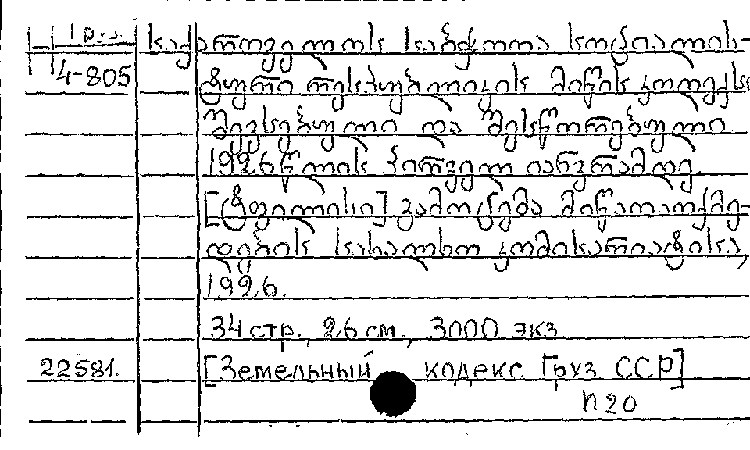 1 рз.
საქართველოს საბჭოთა სოციალის-
4-805 ტური რესპუბლიკის მიწის კოდექსი
შევსებული და შესწორებული
1926 წლის პირველ იანვრამდე.
[ტფილისი] გამოცემა მიწათმოქმე-
დების სახალხო კომისარიატისა,
1926.
34 стр., 26 см., 3000 экз
22581. [Земельный кодекс Груз ССР]
п 20